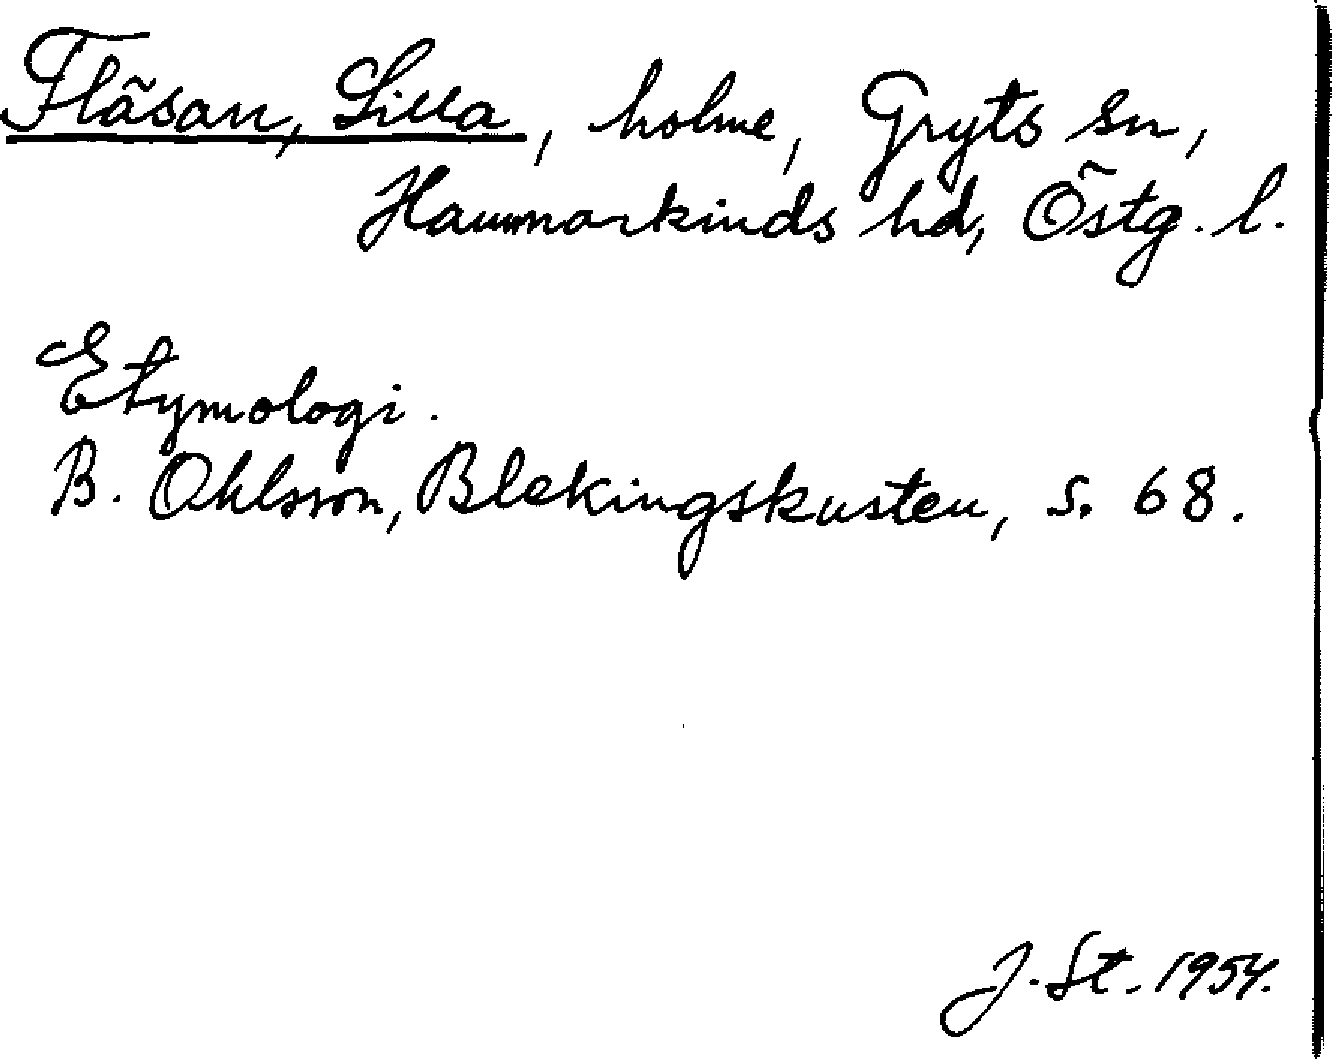 Fläsan, Lilla, holme, Gryts sn,
Hammarkinds hd, Östg. l.
Etymologi.
B. Ohlsson, Blekingskusten, s. 68.
J. St. 1954.